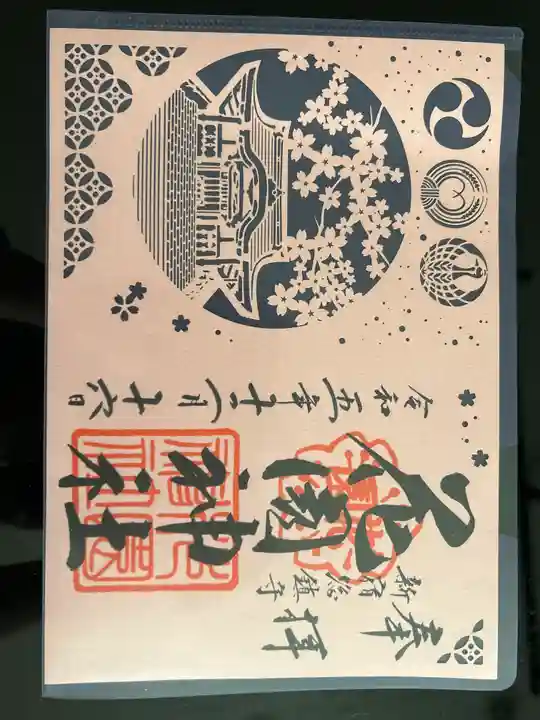 奉拝
新宿総鎮守
花園神社
令和五年十二月十六日